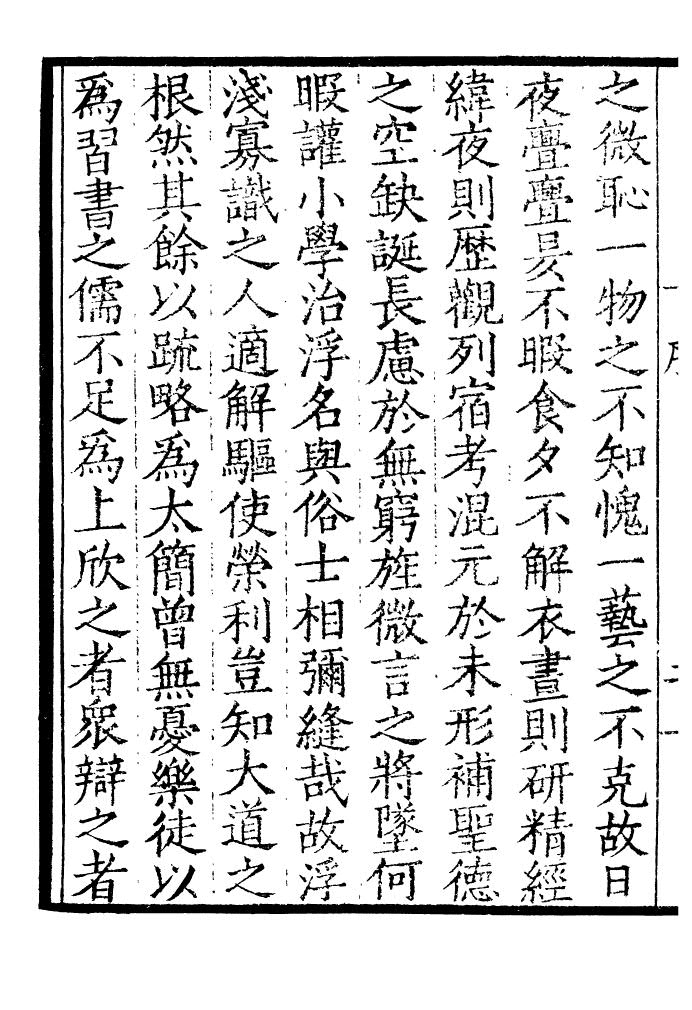 之微恥一物之不知愧一藝之不克故日
夜亹亹昃不暇食夕不解衣晝則研精經
緯夜則歷觀列宿考混元於未形補聖德
之空缺誕長慮於無窮旌微言之將墜何
暇讙小學治浮名與俗士相彌縫哉故浮
淺寡識之人適解驅使榮利豈知大道之
根然其餘以疏略爲太簡曾無憂樂徒以
爲習書之儒不足爲上欣之者衆辯之者